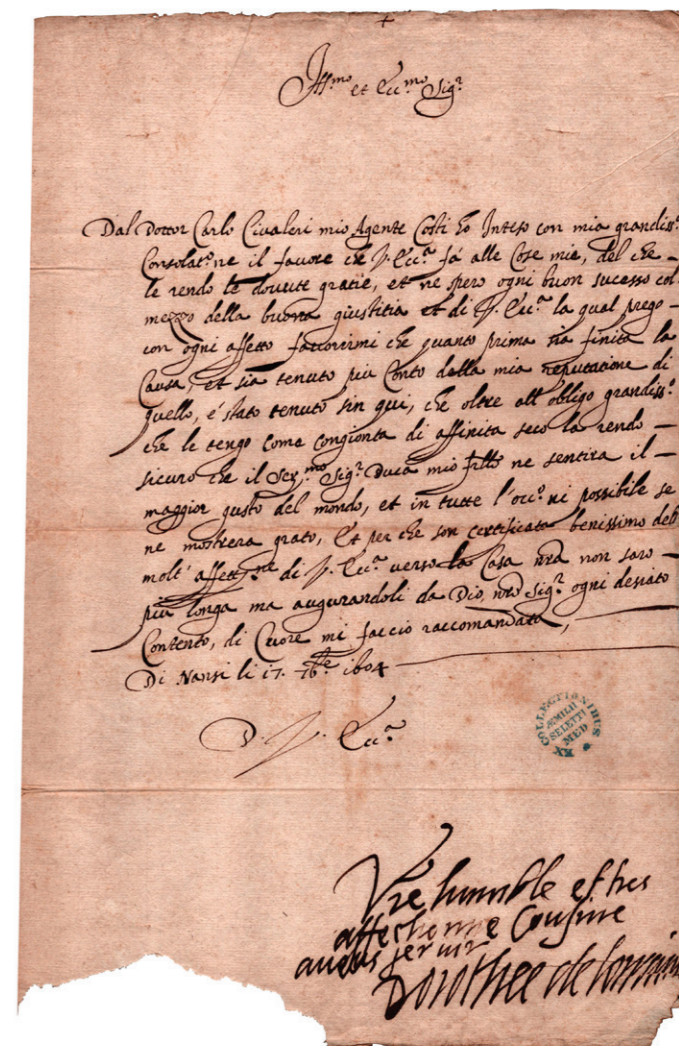 Ill.mo et Ecc.mo Sig.r
Dal Dottor Carlo Civaleri mio Agente Costi ho Inteso con mia grandiss.a
Consolat.ne il favore che V. Ecc.a fà alle Cose mie, del che
le rendo le dovute gratie, et ne spero ogni buon sucesso col
mezzo della buona giustitia et di V. Ecc.a la qual prego
con ogni affetto favorirmi che quanto prima sia finita la
Causa, et sia tenuto più Conto della mia reputatione di
quello, è stato tenuto sin qui, che oltre all'obligo grandiss.o
che le tengo come congionta di affinita seco la rendo
sicuro che il Ser.mo Sig.r Duca mio frãllo ne sentira il
maggior gusto del mondo, et in tutte l'occ.ni possibile se
ne mostrera grato, Et per che son certificata benissimo del
molt' affett.ne di V. Ecc.a verso la Casa nrã non saro
più longa ma augurandoli da Dio, nrõ Sig.r ogni desiato
Contento, di Cuore mi faccio raccomandata,
Di Nansi li 17. 7bre 1604
D. V. Ecc.a
COLLECTIONIBUS
ÆMILII
SELETTI
MED
EX
Vre humble et tres
affectionne Cousine
a vous servir
Dorothee de lorraine